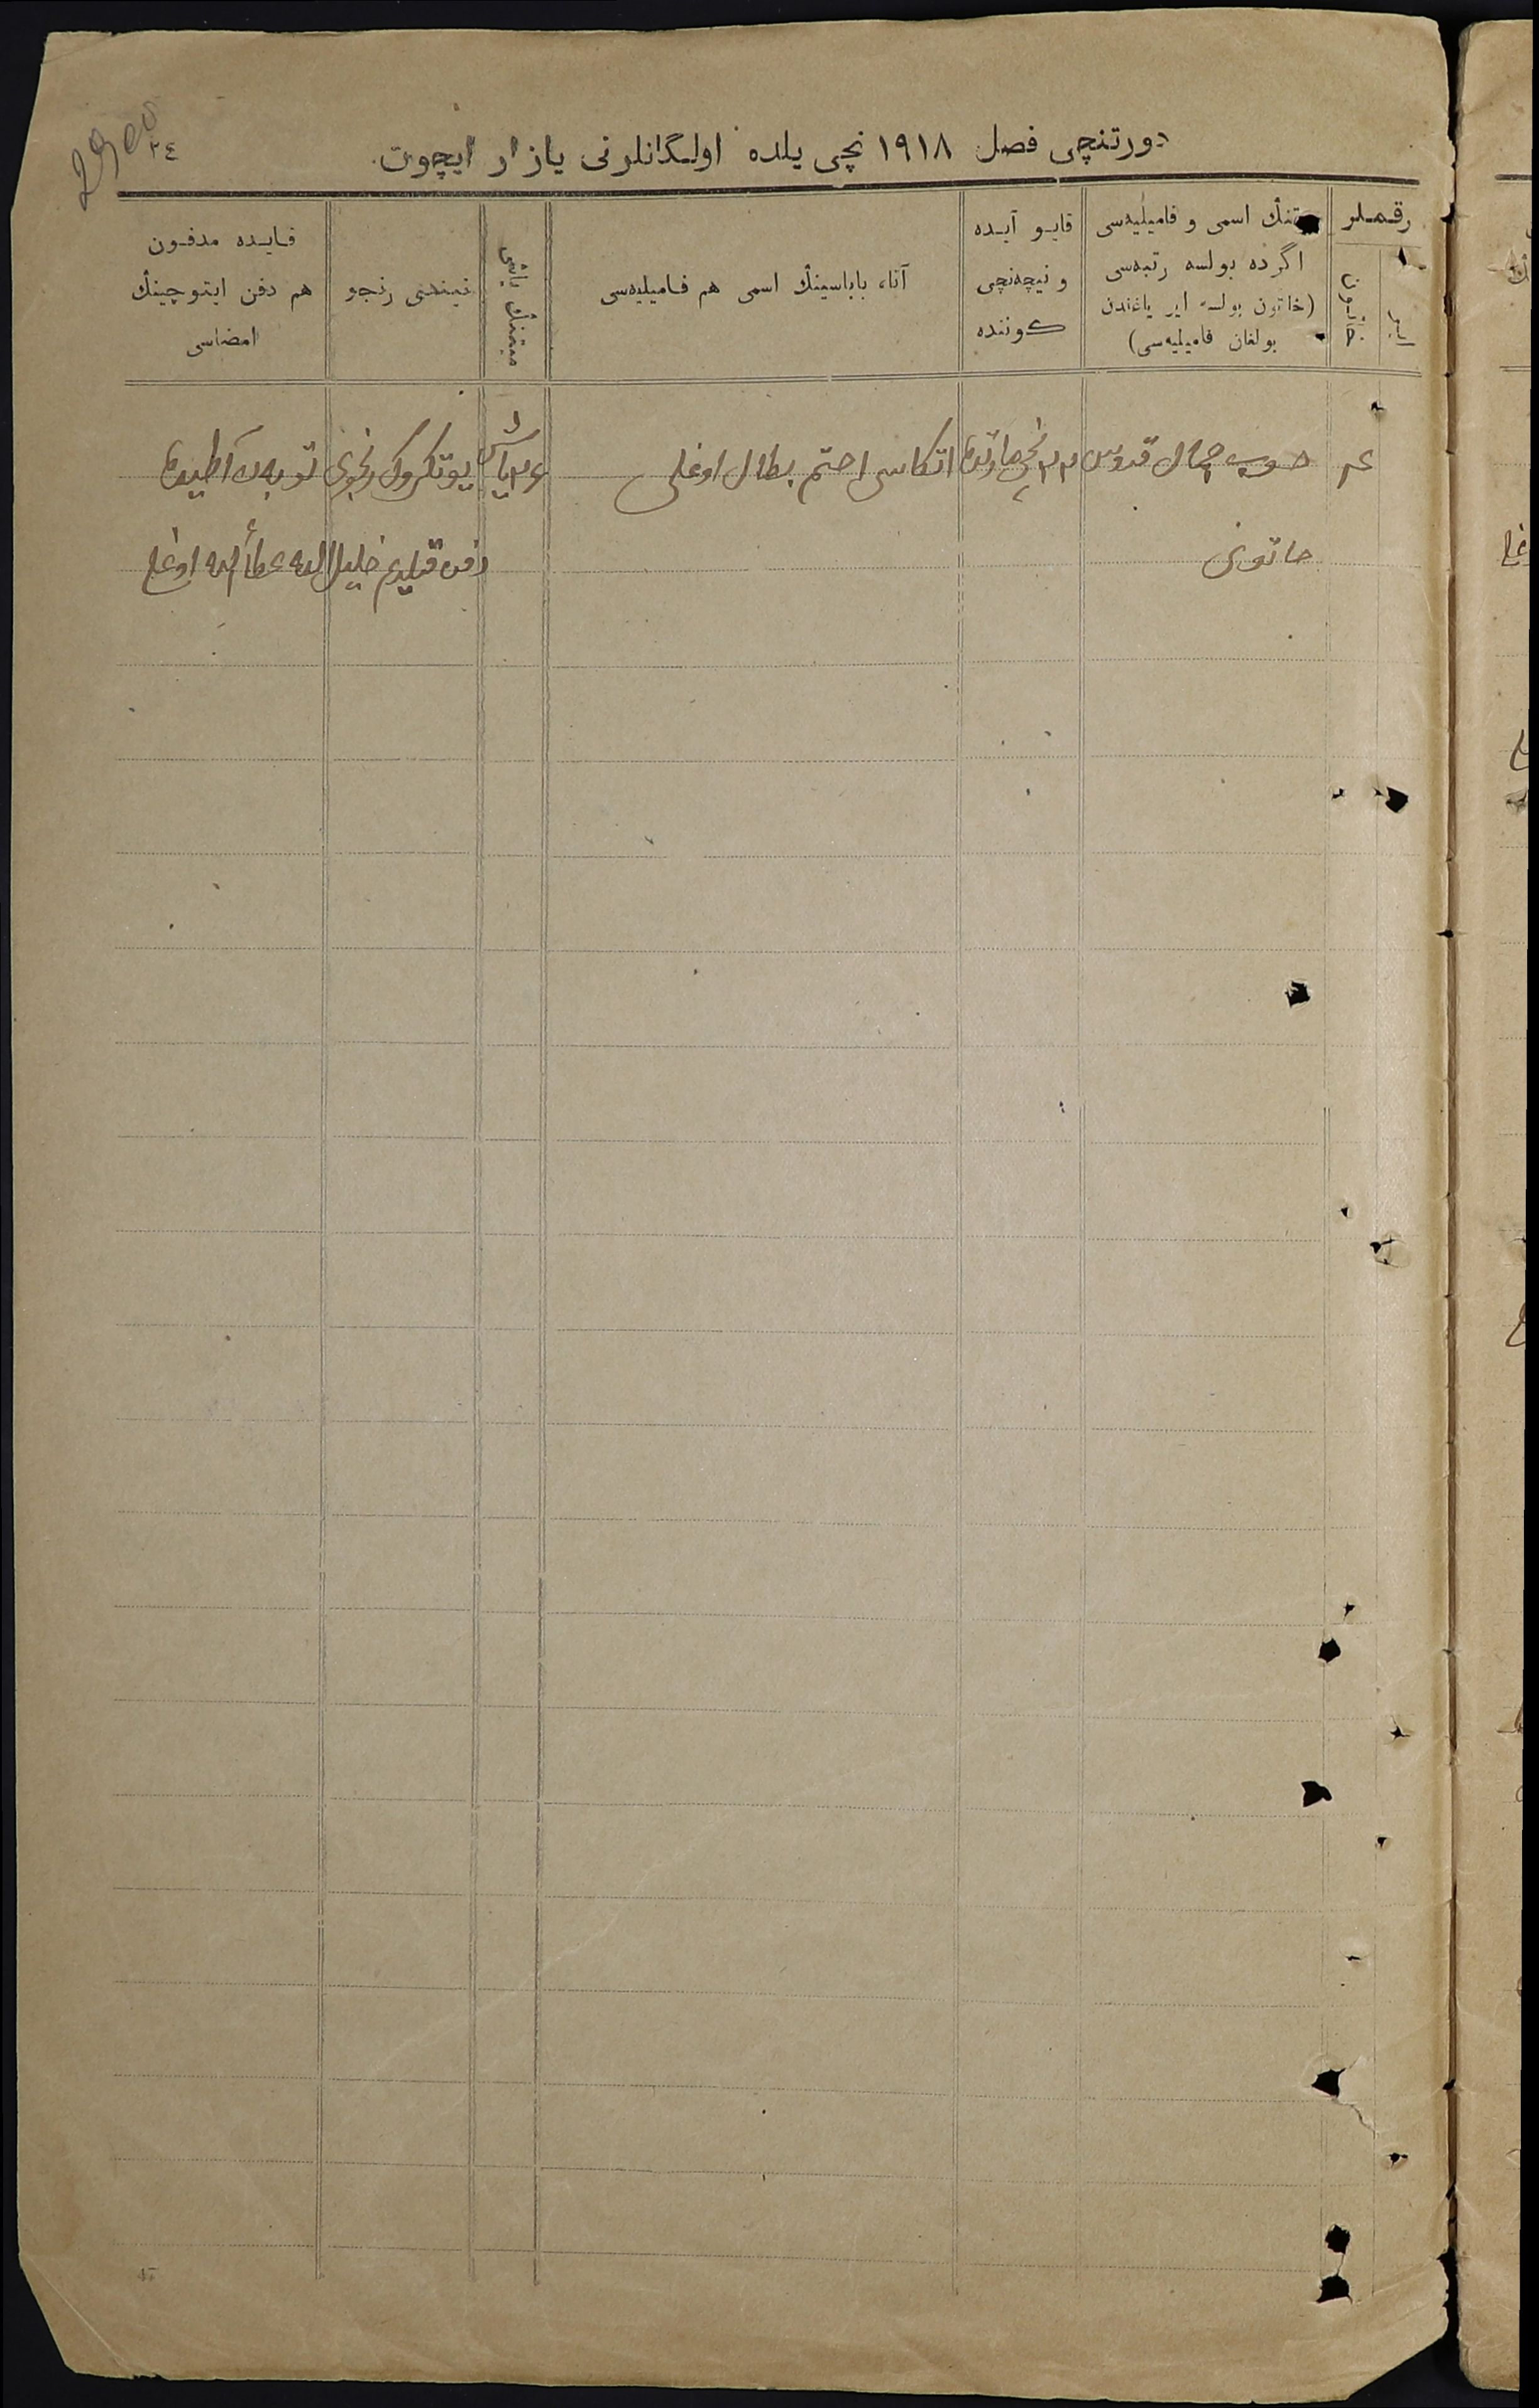 ٢٤
دورتنچی فصل ١٩١٨ نچی یلده اولگانلرنی یازار ایچون
رقملر
ایر
خاتون
اسمی و فامیلیه‌سی
اگرده بولسه رتبه‌سی
(خاتون بولسه ایر یاغندن
بولغان فامیلیه‌سی)
قایو آیده
و نیچه‌نچی
کوننده
آنا، باباسینڭ اسمی هم فامیلیه‌سی
میتنڭ یاشی
نیندی رنجو
قایده مدفون
هم دفن ایتوچینڭ
امضاسی
جمال قدوس
خاتونی
٢٢ نچی مارتده
اتکاسی احتم بطال اوغلی
یاش
یوتکروک رنجوی
دفن قیلدم خلیل الله عطاء الله اوغلی